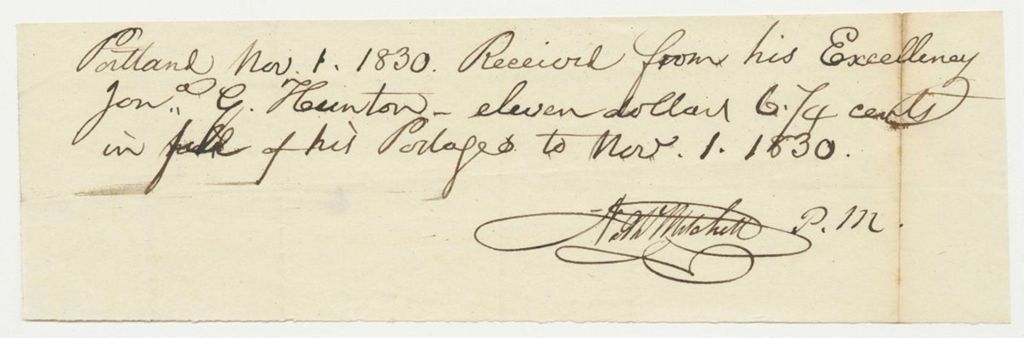 Portland Nov. 1. 1830. Received from his Excellency
Jon.a G. Hunton – eleven dollars 6.1/4 cents
in full of his Postages to Nov. 1. 1830.
Nath Mitchell P.M.